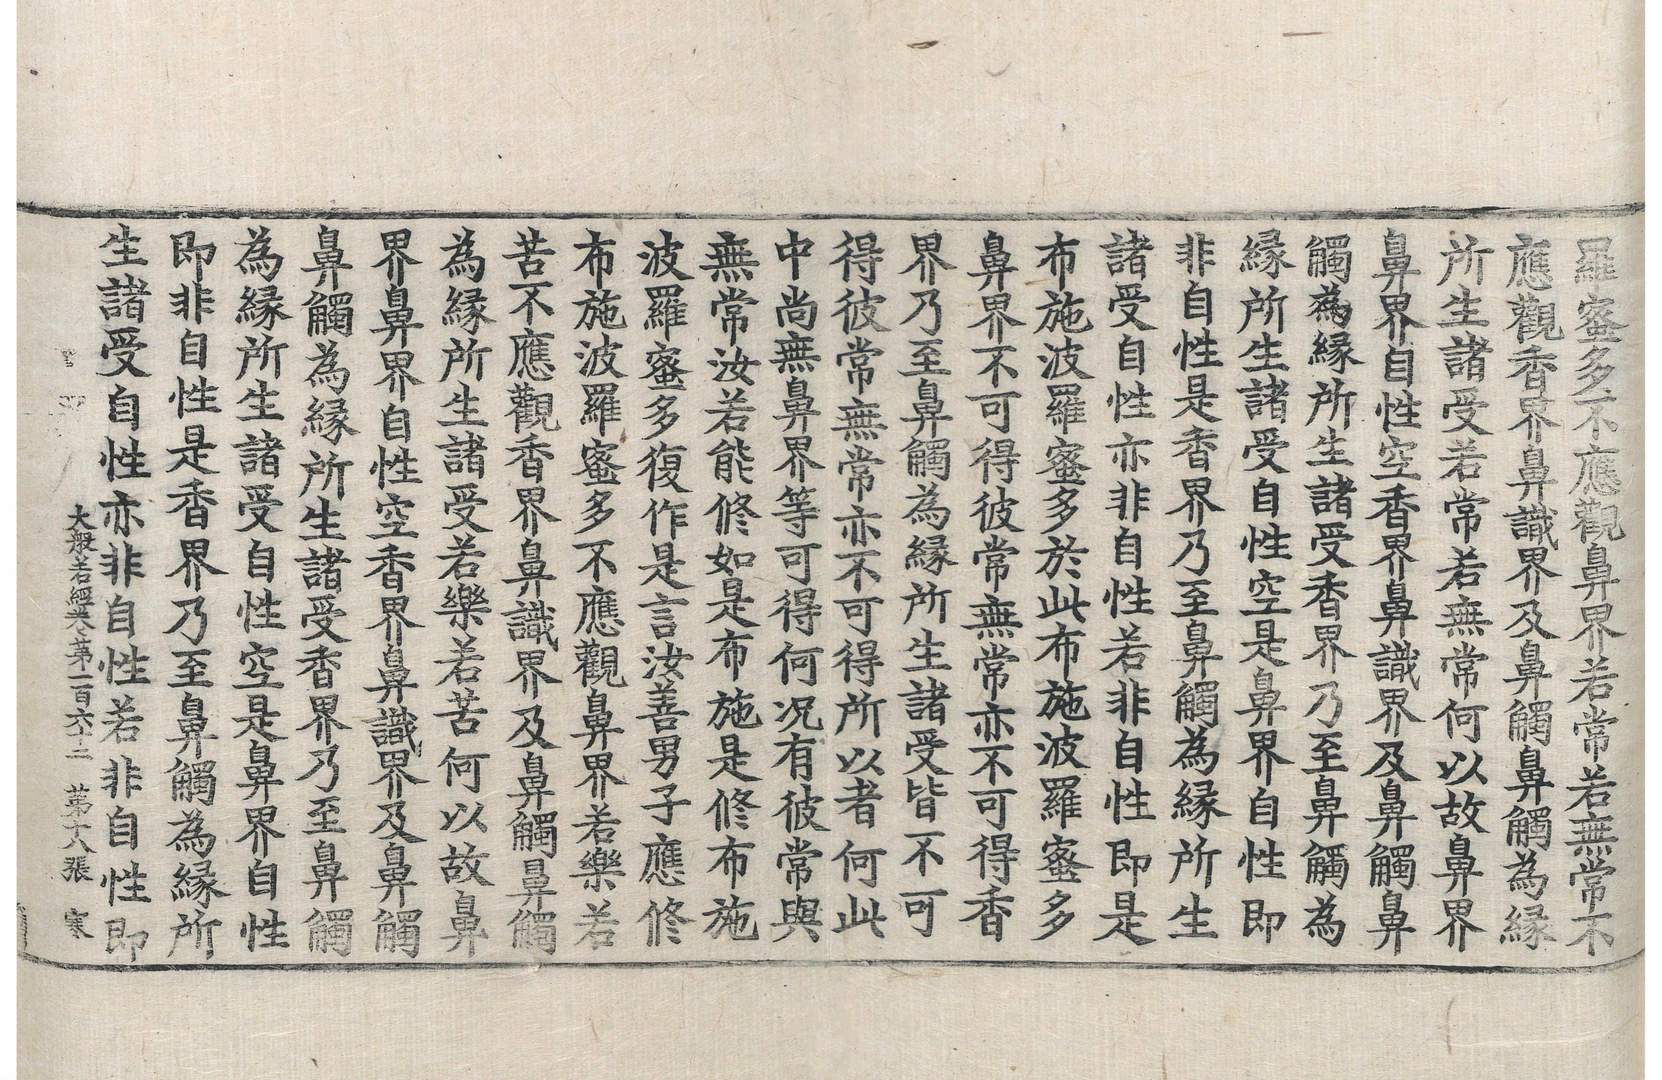 羅蜜多不應觀鼻界若常若無常不
應觀香界鼻識界及鼻觸鼻觸為緣
所生諸受若常若無常何以故鼻界
鼻界自性空香界鼻識界及鼻觸鼻
觸為緣所生諸受香界乃至鼻觸為
緣所生諸受自性空是鼻界自性即
非自性是香界乃至鼻觸為緣所生
諸受自性亦非自性若非自性即是
布施波羅蜜多於此布施波羅蜜多
鼻界不可得彼常無常亦不可得香
界乃至鼻觸為緣所生諸受皆不可
得彼常無常亦不可得所以者何此
中尚無鼻界等可得何況有彼常與
無常汝若能修如是布施是修布施
波羅蜜多復作是言汝善男子應修
布施波羅蜜多不應觀鼻界若樂若
苦不應觀香界鼻識界及鼻觸鼻觸
為緣所生諸受若樂若苦何以故鼻
界鼻界自性空香界鼻識界及鼻觸
鼻觸為緣所生諸受香界乃至鼻觸
為緣所生諸受自性空是鼻界自性
即非自性是香界乃至鼻觸為緣所
生諸受自性亦非自性若非自性即
大般若經卷第一百六十二 第十八張 寒